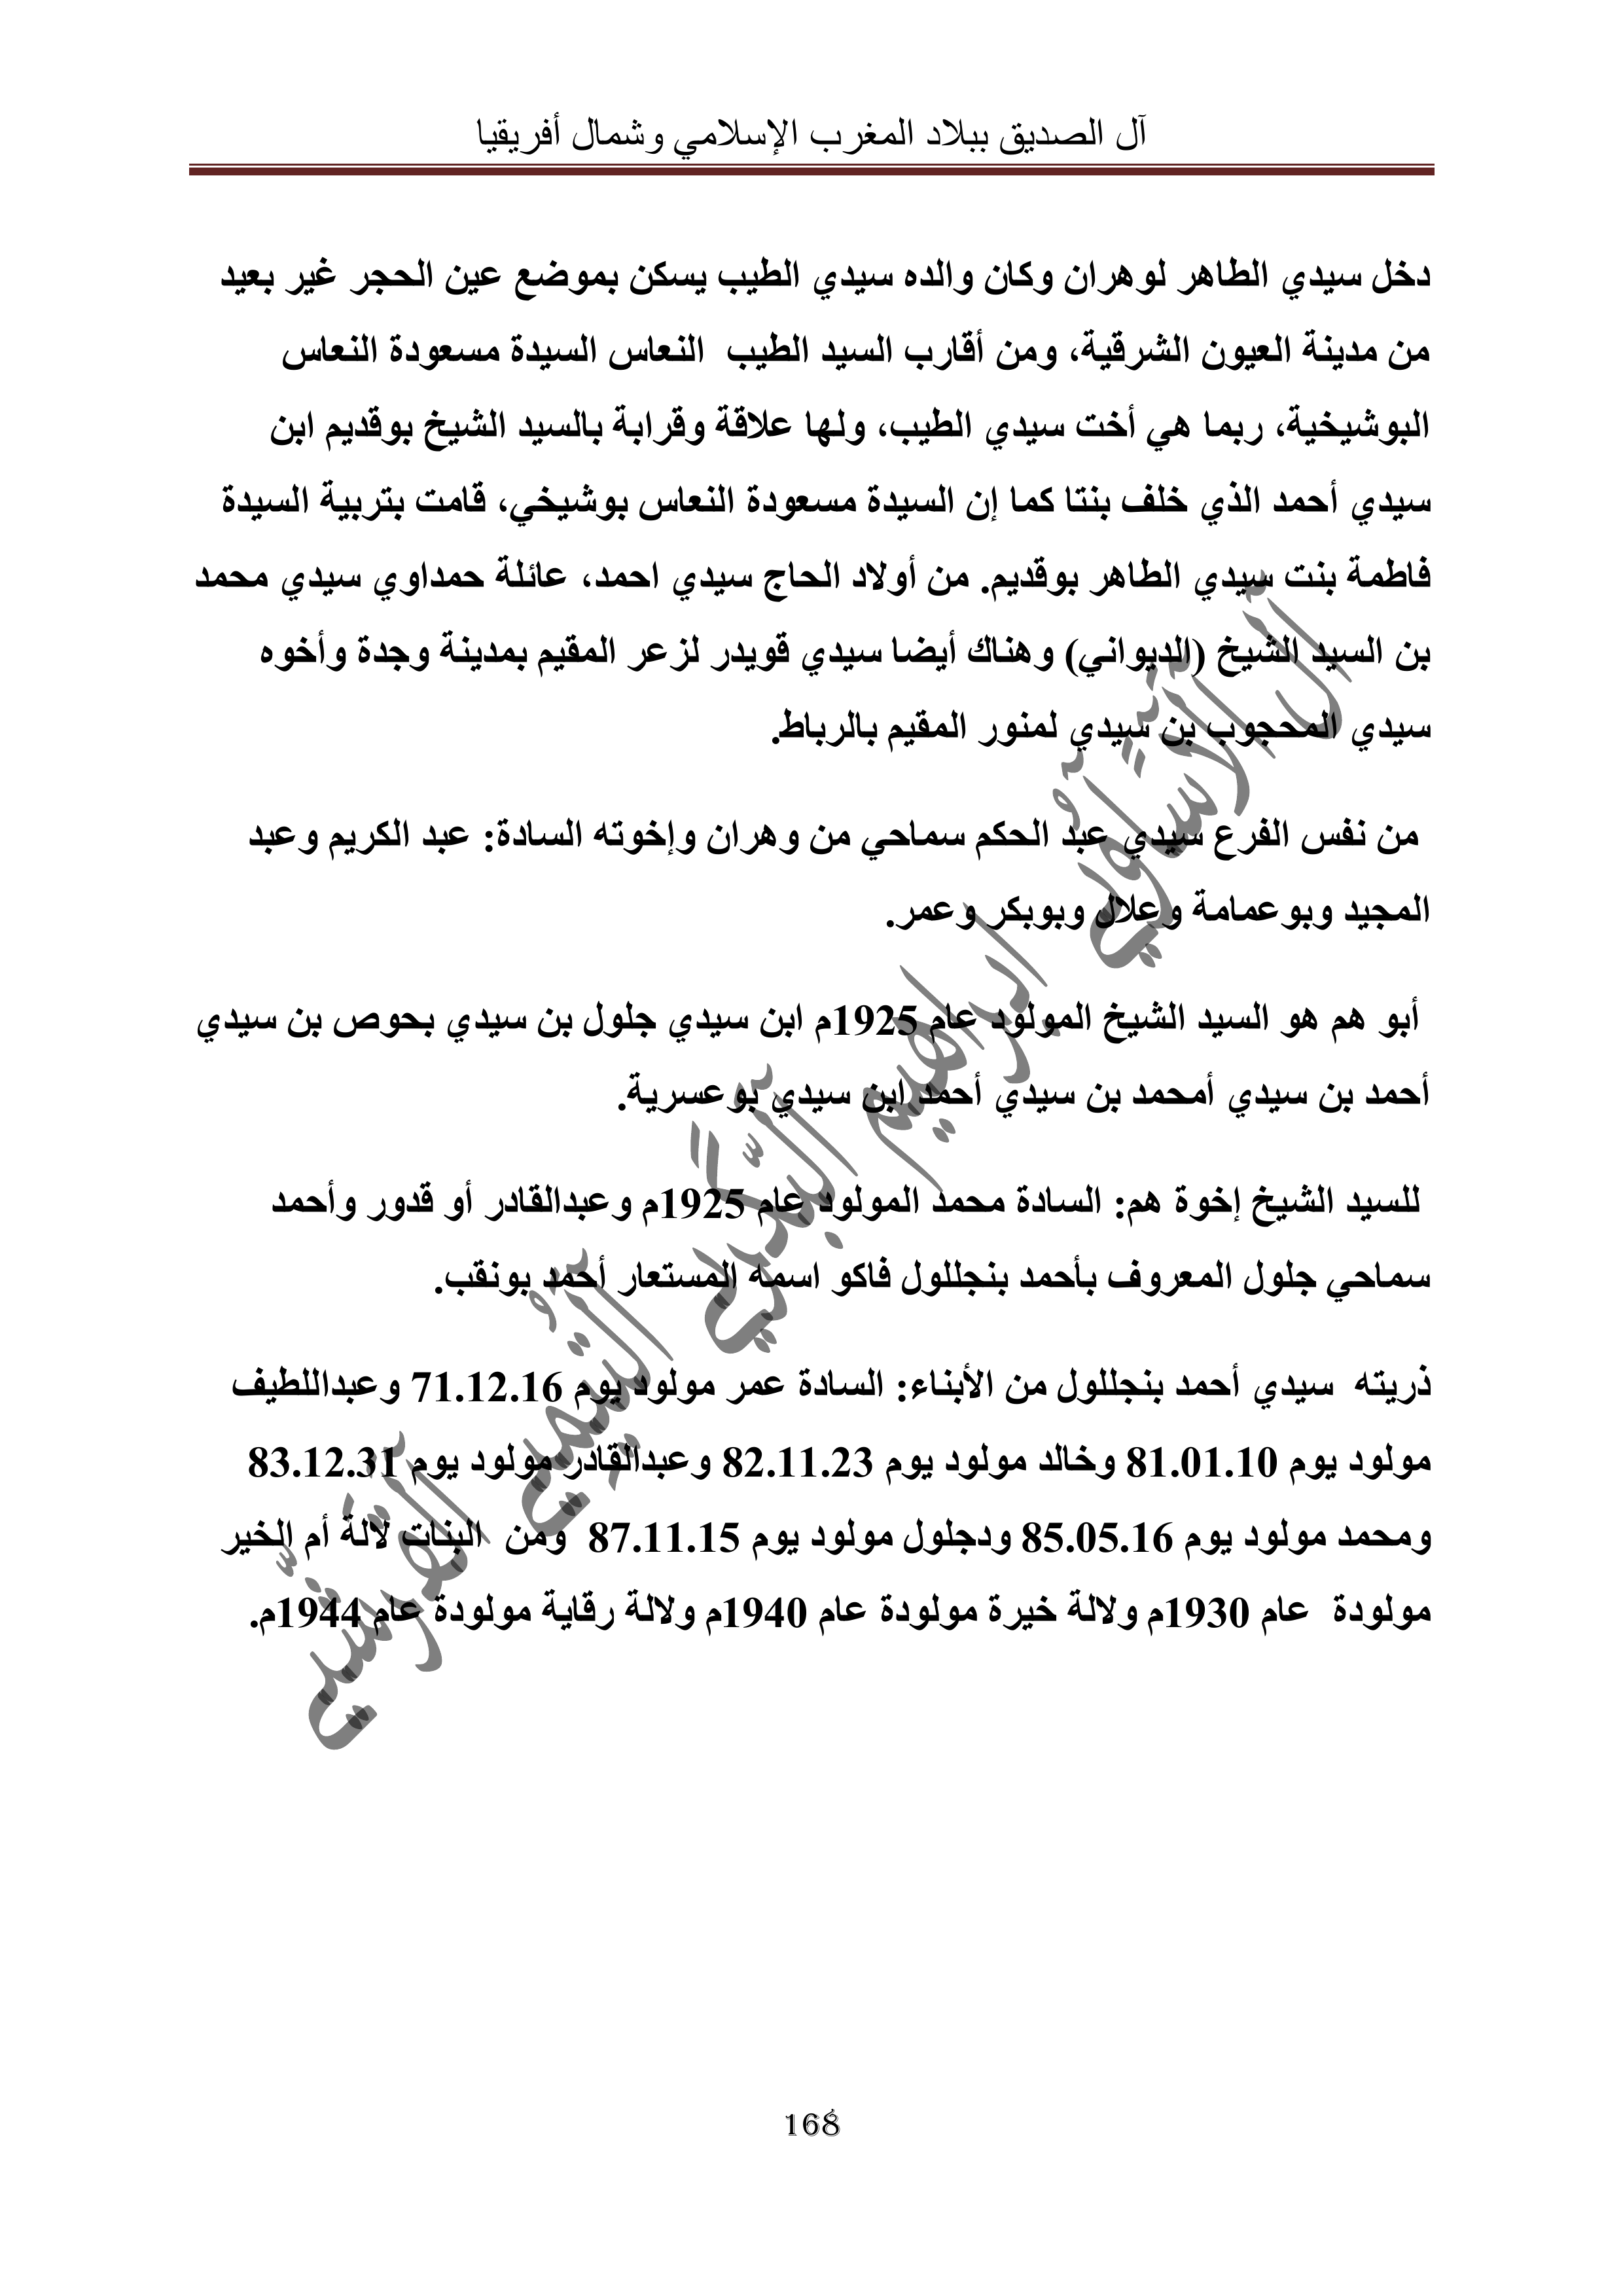 آل الصديق ببلاد المغرب الإسلامي وشمال أفريقيا
دخل سيدي الطاهر لوهران وكان والده سيدي الطيب يسكن بموضع عين الحجر غير بعيد
من مدينة العيون الشرقية، ومن أقارب السيد الطيب النعاس السيدة مسعودة النعاس
البوشيخية، ربما هي أخت سيدي الطيب، ولها علاقة وقرابة بالسيد الشيخ بوقديم ابن
سيدي أحمد الذي خلف بنتا كما إن السيدة مسعودة النعاس بوشيخي، قامت بتربية السيدة
فاطمة بنت سيدي الطاهر بوقديم. من أولاد الحاج سيدي احمد، عائلة حمداوي سيدي محمد
بن السيد الشيخ (الديواني) وهناك أيضا سيدي قويدر لزعر المقيم بمدينة وجدة وأخوه
سيدي المحجوب بن سيدي لمنور المقيم بالرباط.
من نفس الفرع سيدي عبد الحكم سماحي من وهران وإخوته السادة: عبد الكريم وعبد
المجيد وبوعمامة وعلال وبوبكر وعمر.
أبو هم هو السيد الشيخ المولود عام 1925م ابن سيدي جلول بن سيدي بحوص بن سيدي
أحمد بن سيدي أمحمد بن سيدي أحمد ابن سيدي بوعسرية.
للسيد الشيخ إخوة هم: السادة محمد المولود عام 1925م وعبدالقادر أو قدور وأحمد
سماحي جلول المعروف بأحمد بنجللول فاكو اسمه المستعار أحمد بونقب.
ذريته سيدي أحمد بنجللول من الأبناء: السادة عمر مولود يوم 71.12.16 وعبداللطيف
مولود يوم 81.01.10 وخالد مولود يوم 82.11.23 وعبدالقادر مولود يوم 83.12.31
ومحمد مولود يوم 85.05.16 ودجلول مولود يوم 87.11.15 ومن البنات لالة أم الخير
مولودة عام 1930م ولالة خيرة مولودة عام 1940م ولالة رقاية مولودة عام 1944م.
168